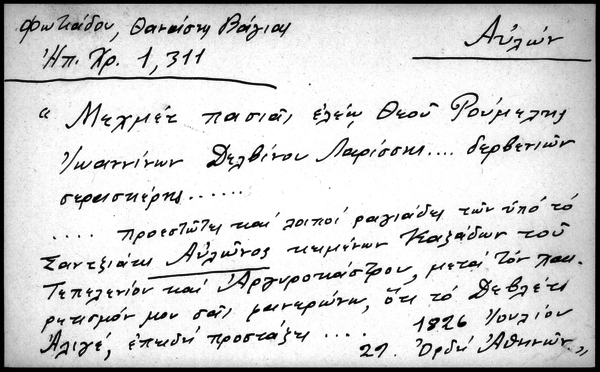 Φωτιάδου, Θανάσης Βάγιας
Ἠπ. Χρ. 1, 311
Αὐλών
" Μεχμὲτ πασιᾶ, ἐλέῳ Θεοῦ Ρούμελης
Ἰωαννίνων Δελβίνου Λαρίσσης.... δερβενιῶν
σερασκέρης......
.... προεστῶτες καὶ λοιποὶ ραγιάδες τῶν ὑπὸ τὸ
Σαντζιάκι Αὐλῶνος κειμένων Καζάδων τοῦ
Τεπελενίου καὶ Ἀργυροκάστρου, μετὰ τὸν χαι-
ρετισμόν μου σᾶς φανερώνω, ὅτι τὸ Δεβλέτι
Ἀλιγέ, ἐπειδὴ προστάζει .... 1826 Ἰουλίου
29. Ὀρδὶ Ἀθηνῶν"